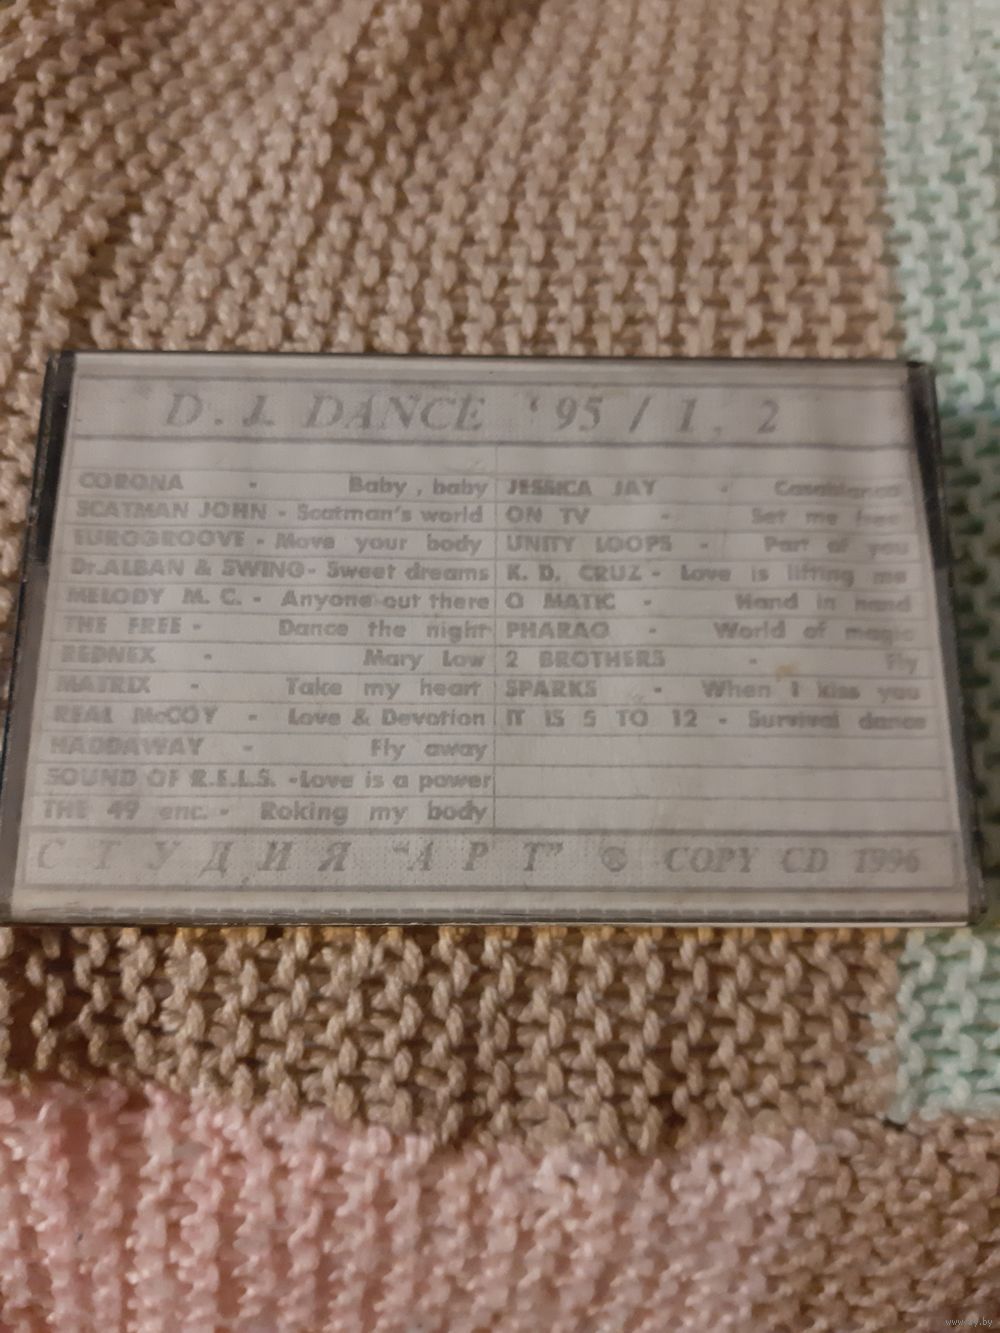 D. J. DANCE '95 / 1, 2
CORONA - Baby, baby
SCATMAN JOHN - Scatman's world
EUROGROOVE - Move your body
Dr.ALBAN & SWING - Sweet dreams
MELODY M. C. - Anyone out there
THE FREE - Dance the night
REDNEX - Mary Low
MATRIX - Take my heart
REAL McCOY - Love & Devotion
HADDAWAY - Fly away
SOUND OF R.E.L.S. - Love is a power
THE 49 enc. - Roking my body
JESSICA JAY - Casablanca
ON TV - Set me free
UNITY LOOPS - Part of you
K. D. CRUZ - Love is lifting me
O MATIC - Hand in hand
PHARAO - World of magic
2 BROTHERS - Fly
SPARKS - When I kiss you
IT IS 5 TO 12 - Survival dance
СТУДИЯ "АРТ" © COPY CD 1996